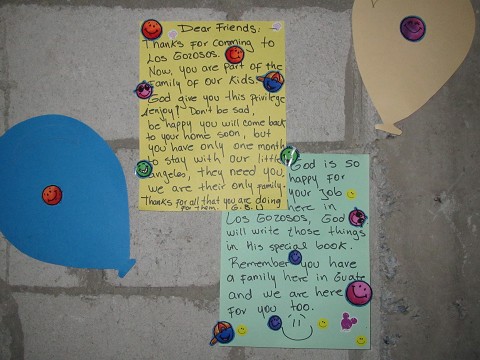 Dear Friends:
Thanks for comming to
Los Gozosos.
Now, you are part of the
family of our kids.
God give you this privilege
¡enjoy! Don't be sad,
be happy you will come back
to your home soon, but
you have only one month
to stay with our little
angeles, they need you,
we are their only family.
Thanks for all that you are doing
for them. G.B.U
God is so
happy for
your job
here in
Los Gozosos, God
will write those things
in His special book.
Remember you have
a family here in Guate
and we are here
for you too.